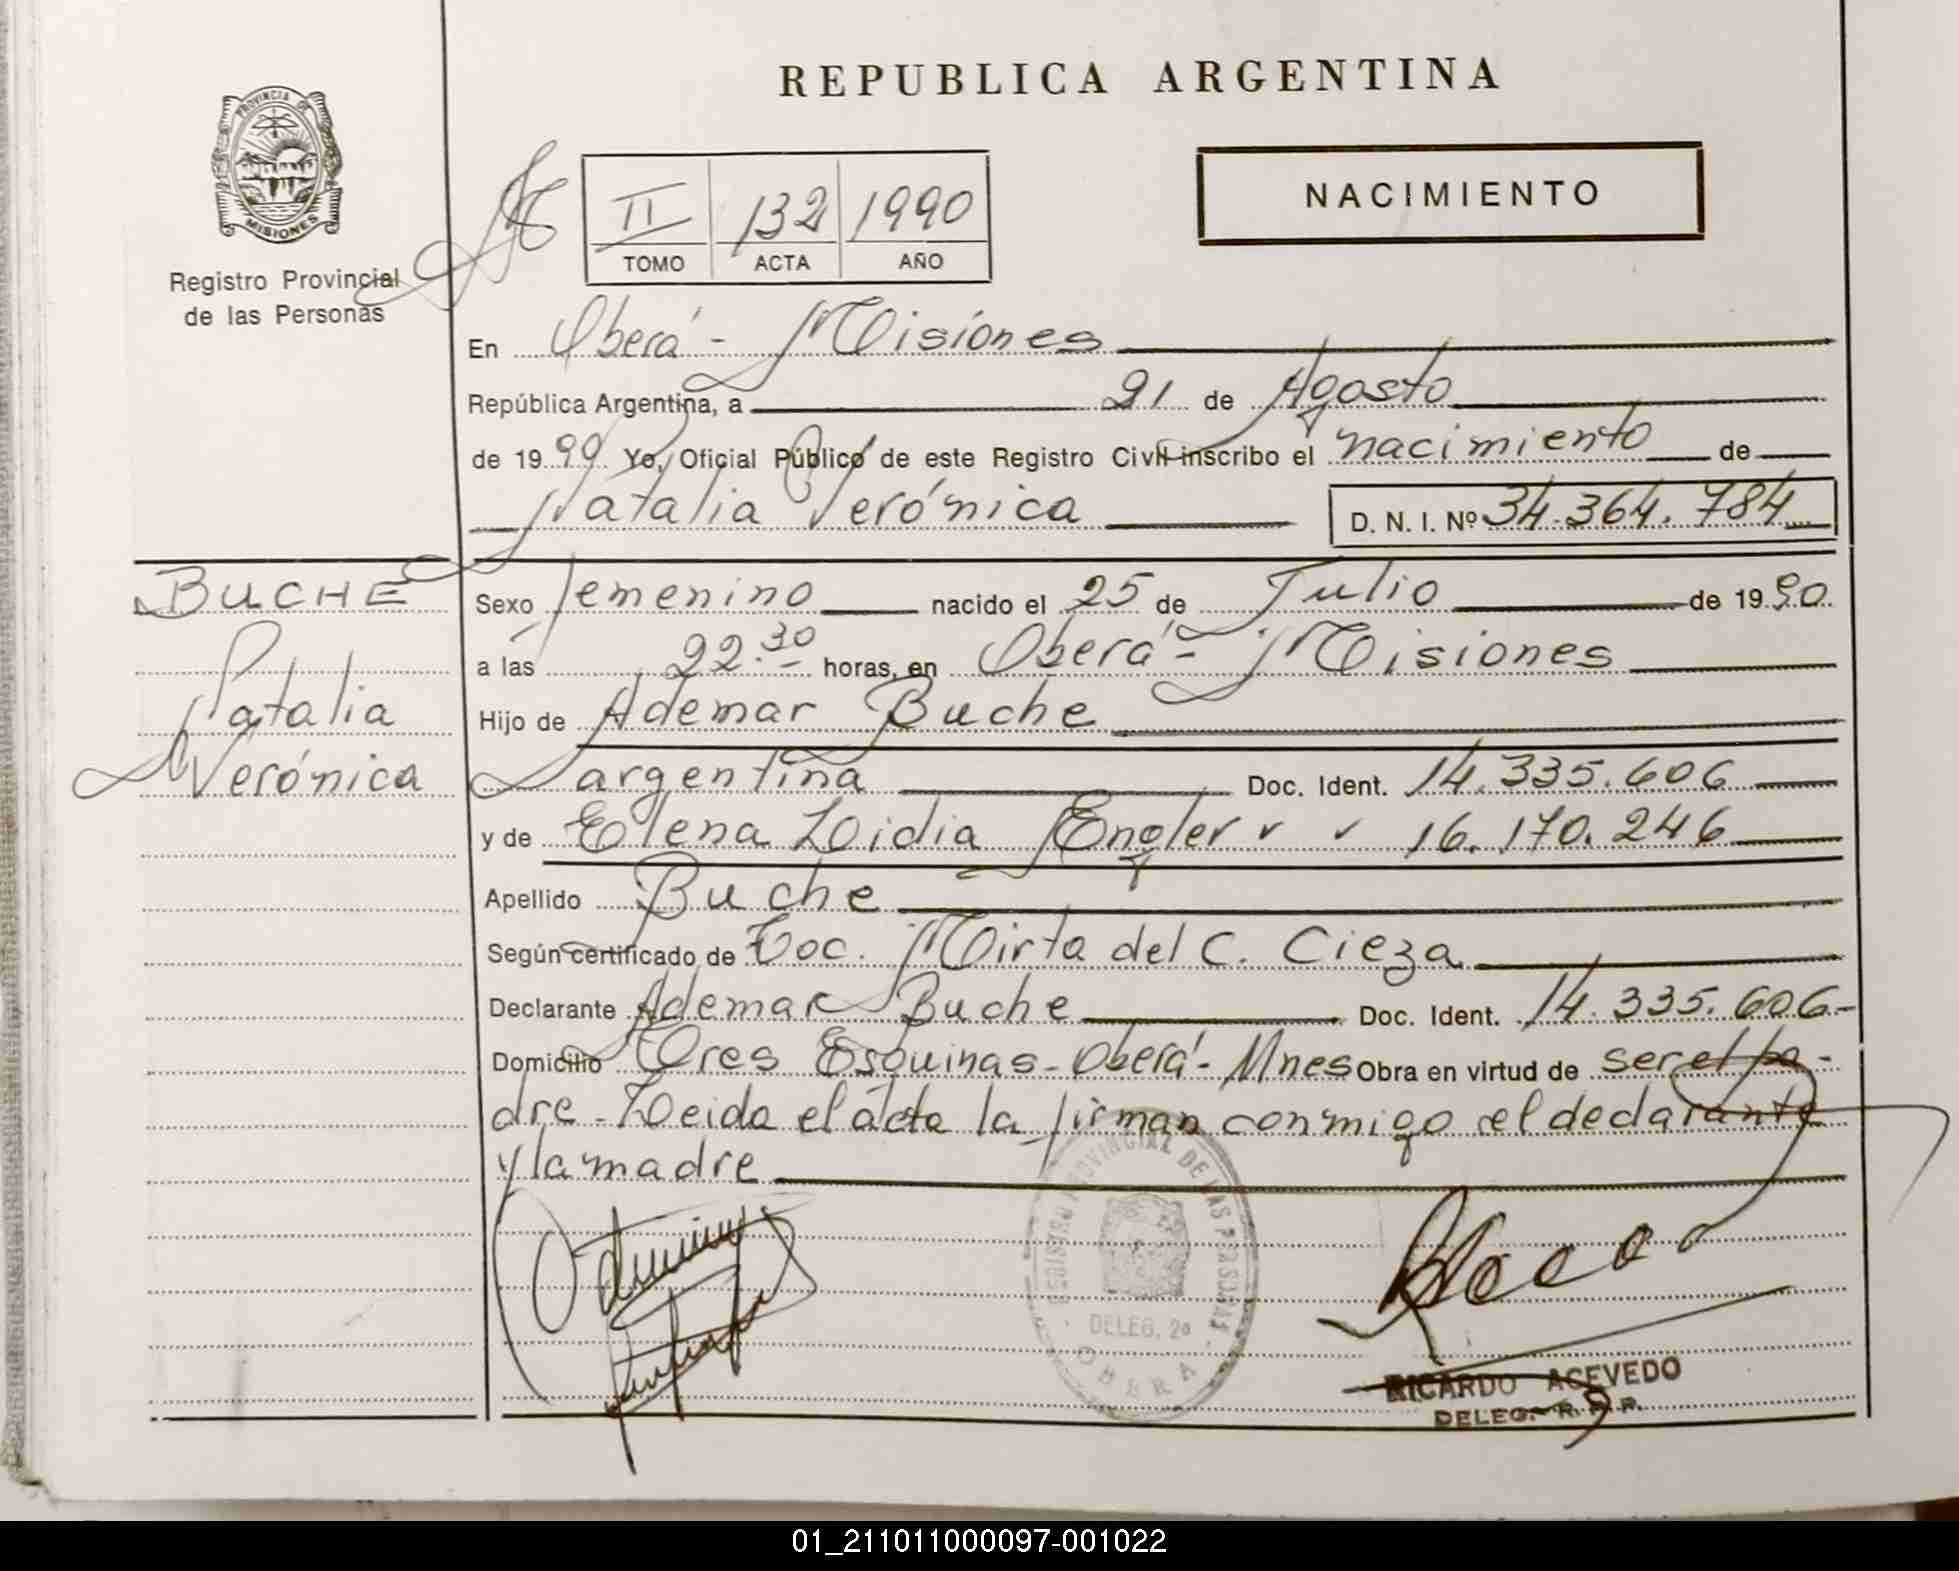 REPUBLICA ARGENTINA
PROVINCIA DE
MISIONES
Registro Provincial
de las Personas
II 132 1990
TOMO ACTA AÑO
NACIMIENTO
En Oberá - Misiones
República Argentina, a 21 de Agosto
de 1990 Yo, Oficial Público de este Registro Civil inscribo el nacimiento de
Natalia Verónica D. N. I. Nº 34.364.784
BUCHE
Natalia
Verónica
Sexo femenino nacido el 25 de Julio de 1990.
a las 22.30 horas, en Oberá - Misiones
Hijo de Ademar Buche
argentina Doc. Ident. 14.335.606
y de Elena Lidia Engler " " 16.170.246
Apellido Buche
Según certificado de Toc. Mirta del C. Cieza
Declarante Ademar Buche Doc. Ident. 14.335.606-
Domicilio Tres Esquinas - Oberá - Mnes Obra en virtud de ser el pa-
dre - Leida el acta la firman conmigo el declarante
y la madre
REGISTRO PROVINCIAL DE LAS PERSONAS
DELEG. 2ª
OBERA
RICARDO ACEVEDO
DELEG. R. P. P.
01_211011000097-001022